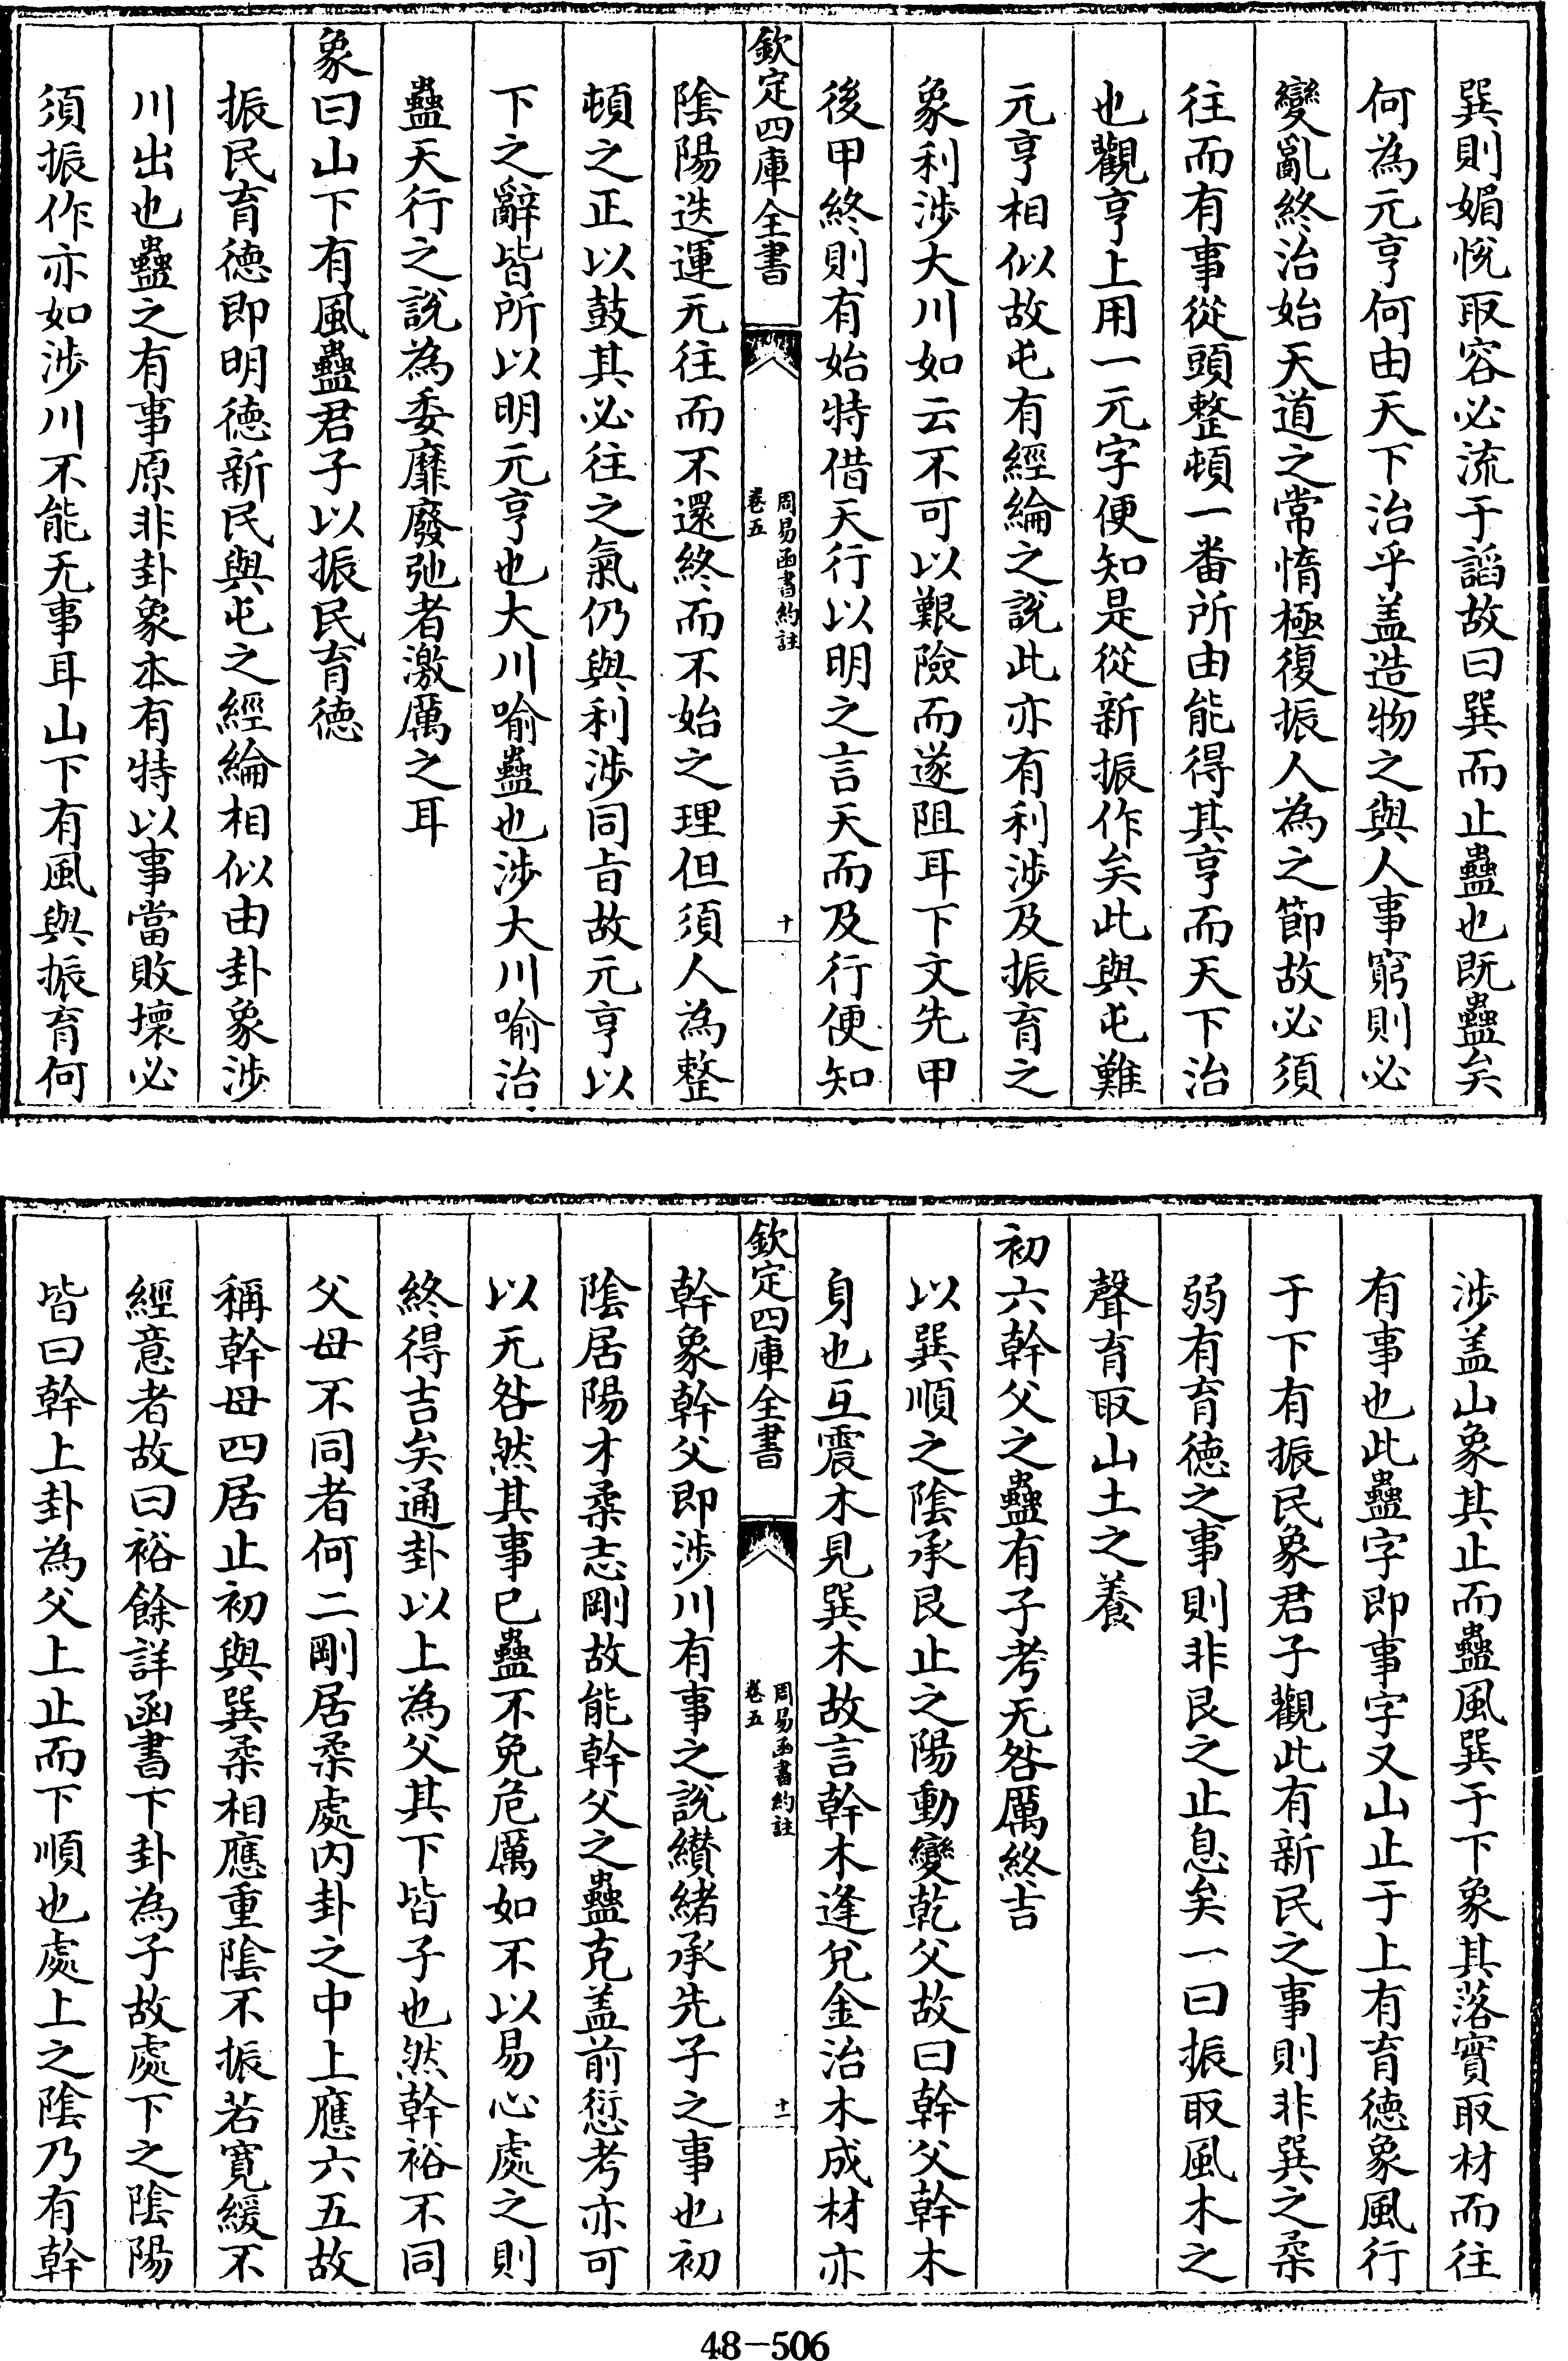 巽則媚悅取容必流于諂故曰巽而止蠱也既蠱矣
何為元亨何由天下治乎盖造物之與人事窮則必
變亂終治始天道之常惰極復振人為之節故必須
往而有事從頭整頓一番所由能得其亨而天下治
也觀亨上用一元字便知是從新振作矣此與屯難
元亨相似故屯有經綸之說此亦有利涉及振育之
象利涉大川如云不可以艱險而遂阻耳下文先甲
後甲終則有始特借天行以明之言天而及行便知
欽定四庫全書
周易函書約註
卷五
十
陰陽迭運无往而不還終而不始之理但須人為整
頓之正以鼓其必往之氣仍與利涉同旨故元亨以
下之辭皆所以明元亨也大川喻蠱也涉大川喻治
蠱天行之說為委靡廢弛者激厲之耳
象曰山下有風蠱君子以振民育德
振民育德即明德新民與屯之經綸相似由卦象涉
川出也蠱之有事原非卦象本有特以事當敗壞必
須振作亦如涉川不能无事耳山下有風與振育何
涉盖山象其止而蠱風巽于下象其落實取材而往
有事也此蠱字即事字又山止于上有育德象風行
于下有振民象君子觀此有新民之事則非巽之柔
弱有育德之事則非艮之止息矣一曰振取風木之
聲育取山土之養
初六幹父之蠱有子考无咎厲終吉
以巽順之陰承艮止之陽動變乾父故曰幹父幹木
身也互震木見巽木故言幹木逢兌金治木成材亦
欽定四庫全書
周易函書約註
卷五
十一
幹象幹父即涉川有事之說纘緒承先子之事也初
陰居陽才柔志剛故能幹父之蠱克盖前愆考亦可
以无咎然其事已蠱不免危厲如不以易心處之則
終得吉矣通卦以上為父其下皆子也然幹裕不同
父母不同者何二剛居柔處内卦之中上應六五故
稱幹母四居止初與巽柔相應重陰不振若寬緩不
經意者故曰裕餘詳函書下卦為子故處下之陰陽
皆曰幹上卦為父上止而下順也處上之陰乃有幹
48-506